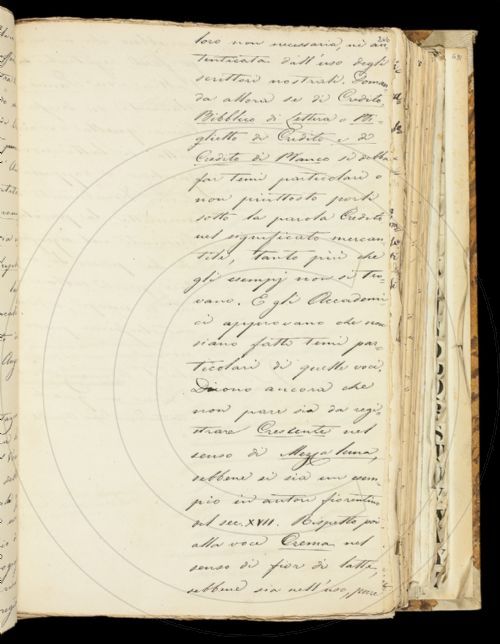 246
loro non necessaria, nè au-
tenticata dall'uso degli
scrittori nostrali. Doman
da allora se di Credito
Pubblico di Lettera o Bi-
glietto di Credito e di
Credito di Banco si debba
far temi particolari o
non piuttosto porli
sotto la parola Credito
nel significato mercan
tile, tanto più che
gli esempj non si tro-
vano. E gli Accademi
ci approvano che non
siano fatti temi par-
ticolari di quelle voci.
Dicono ancora che
non pare sia da regi-
strare Crescente nel
senso di Mezza luna,
sebbene vi sia un esem-
pio in autori fiorentino
del sec. XVII. Rispetto poi
alla voce Crema nel
senso di fior di latte,
sebbene sia nell'uso, pure